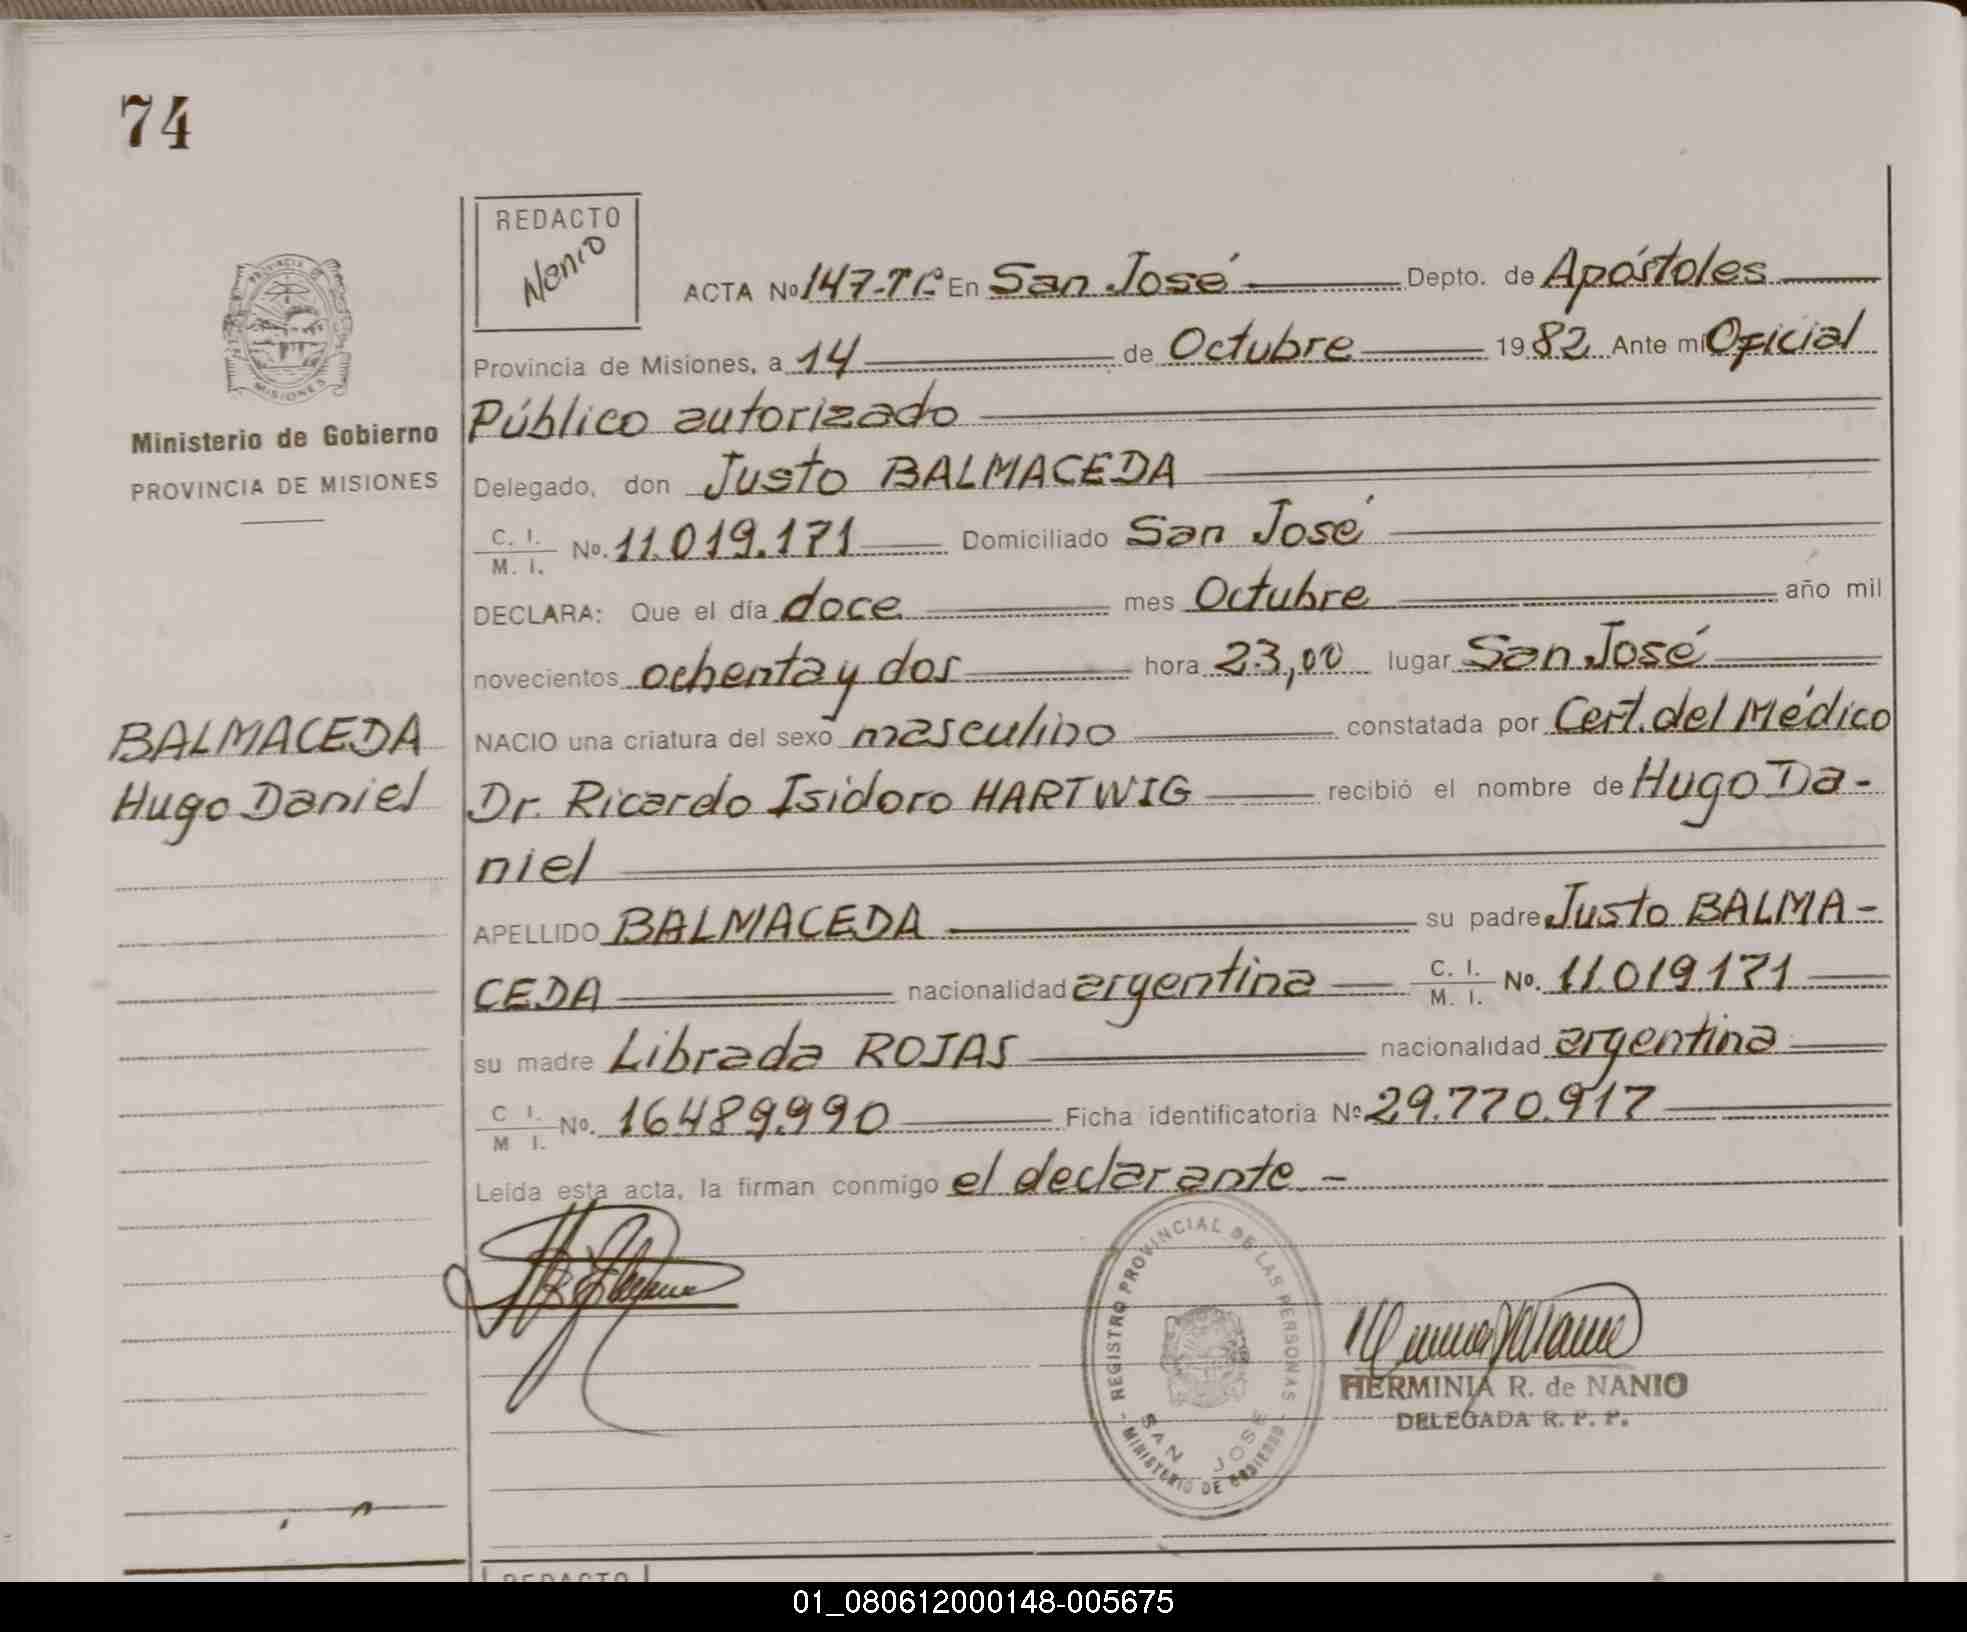 74
REDACTO
Nanio
ACTA Nº 147-Tº- En San José Depto. de Apóstoles
Provincia de Misiones, a 14 de Octubre 1982 Ante mi Oficial
Público autorizado
Delegado, don Justo BALMACEDA
C. I. M. I. No. 11.019.171 Domiciliado San José
DECLARA: Que el día doce mes Octubre año mil
novecientos ochenta y dos hora 23,00 lugar San José
NACIO una criatura del sexo masculino constatada por Cert. del Médico
Dr. Ricardo Isidoro HARTWIG recibió el nombre de Hugo Da-
niel
APELLIDO BALMACEDA su padre Justo BALMA-
CEDA nacionalidad argentina C. I. M. I. No. 11.019.171
su madre Librada ROJAS nacionalidad argentina
C I. M I. No. 16.489.990 Ficha identificatoria Nº 29.770.917
Leída esta acta, la firman conmigo el declarante. -
PROVINCIA DE MISIONES
Ministerio de Gobierno
PROVINCIA DE MISIONES
BALMACEDA
Hugo Daniel
REGISTRO PROVINCIAL DE LAS PERSONAS
SAN JOSE
- MINISTERIO DE GOBIERNO -
HERMINIA R. de NANIO
DELEGADA R. P. P.
REDACTO
01_080612000148-005675